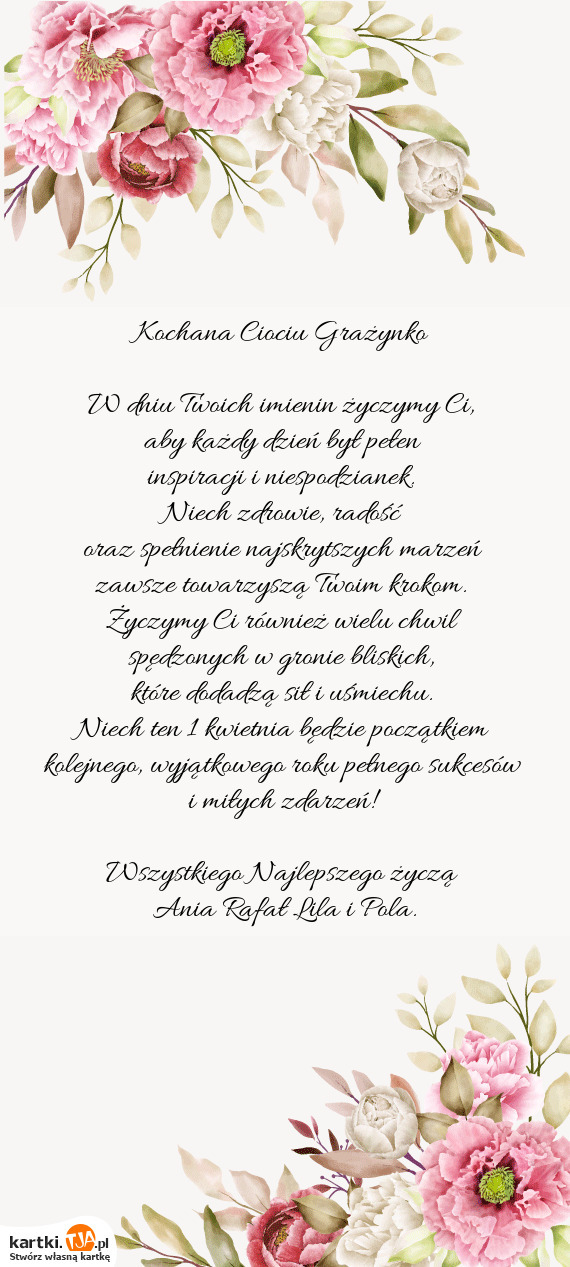 Kochana Ciociu Grażynko
W dniu Twoich imienin życzymy Ci,
aby każdy dzień był pełen
inspiracji i niespodzianek.
Niech zdrowie, radość
oraz spełnienie najskrytszych marzeń
zawsze towarzyszą Twoim krokom.
Życzymy Ci również wielu chwil
spędzonych w gronie bliskich,
które dodadzą sił i uśmiechu.
Niech ten 1 kwietnia będzie początkiem
kolejnego, wyjątkowego roku pełnego sukcesów
i miłych zdarzeń!
Wszystkiego Najlepszego życzą
Ania Rafał Lila i Pola.
kartki.TJA.pl
Stwórz własną kartkę